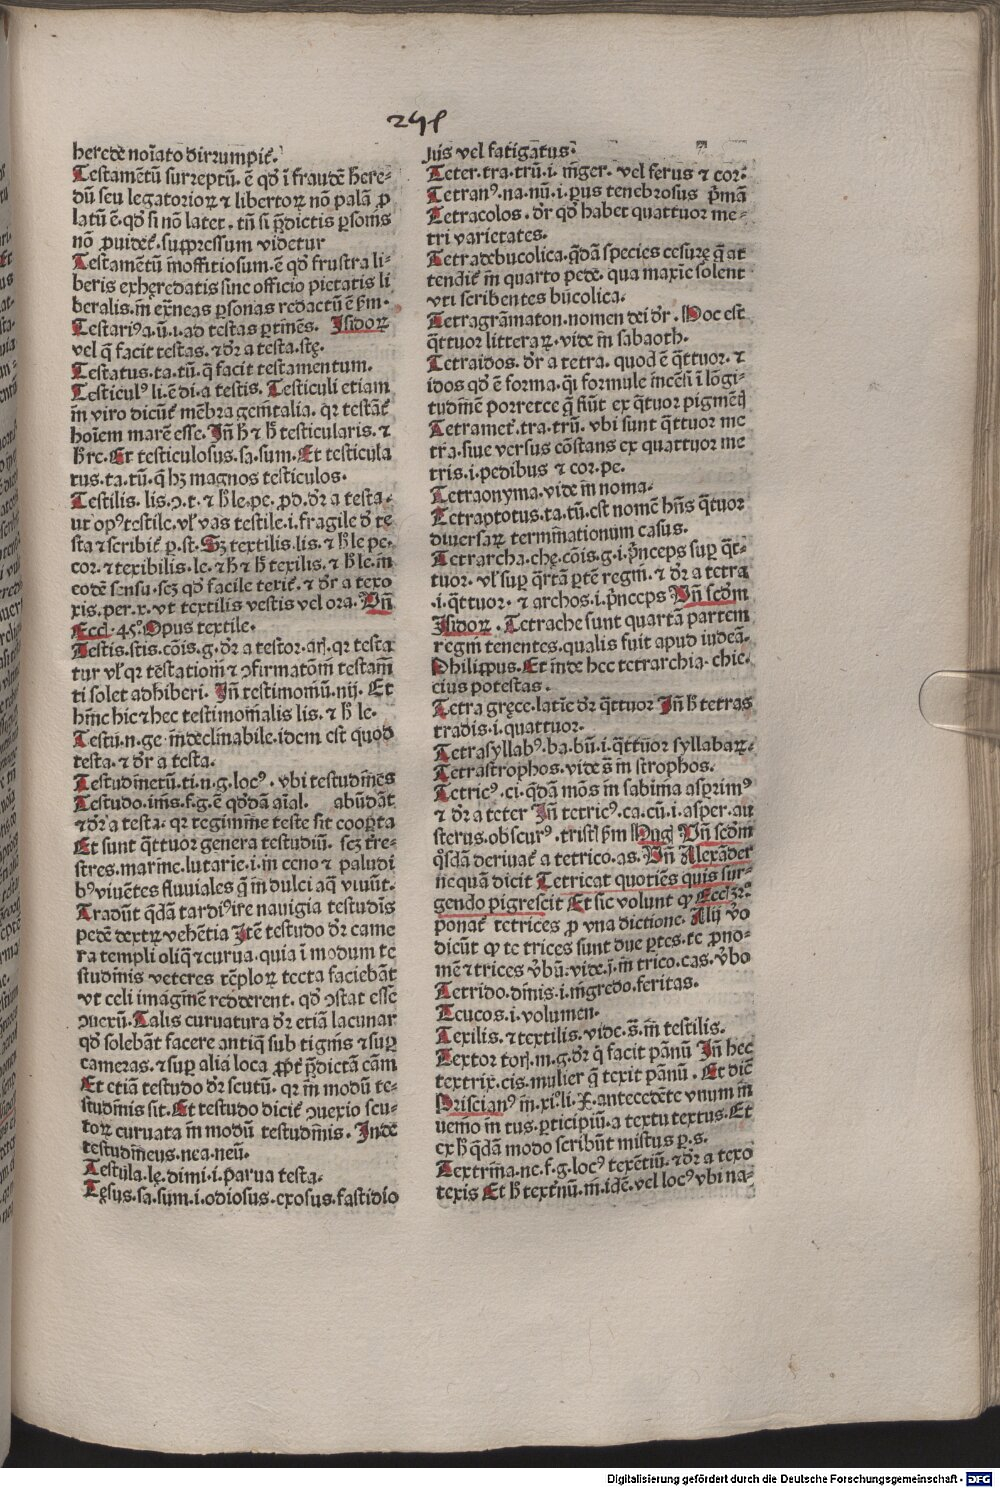 291
heredē noīato dirrumpit̄.
Testamētū surreptū. ē qd̓ ī fraudē here-
dū seu legatorioꝝ ⁊ libertoꝝ nō palā ꝓ
latū ē. qd̓ si nō latet. tn̄ si p̄dictis ꝑsonis
nō ꝓuidet̄. suppressum videtur
Testamētū inoffitiosum. ē qd̓ frustra li-
beris exhęredatis sine officio pietatis li
beralis. in ext̄neas ꝑsonas redactū ē ẜm.
Testariꝰ. a. ū. i. ad testas ꝑtinēs. Isidoꝝ
vel q̄ facit testas. ⁊ dr̄ a testa. stę.
Testatus. ta. tū. q̄ facit testamentum.
Testiculꝰ li. ē di. a testis. Testiculi etiam
in viro dicūt̄ mēbra genitalia. qr testāt̄
hoīem marē esse. Iñ h̄ ⁊ h̄ testicularis. ⁊
h̄ re. Et testiculosus. sa. sum. Et testicula
tus. ta. tū. q̄ hꝫ magnos testiculos.
Testilis. lis. ɔ. t. ⁊ h̄ le. pe. ꝓd. dr̄ a testa.
vt opꝰ testile. vl̓ vas testile. i. fragile d̓ te
sta ⁊ scribit̄ ꝑ. st. Sꝫ textilis. lis. ⁊ h̄ le pe.
cor. ⁊ texibilis. le. ⁊ h̄ ⁊ h̄ texilis. ⁊ h̄ le. in
eodē sensu. scꝫ qd̓ facile texit̄. ⁊ dr̄ a texo
xis. per. x. vt textilis vestis vel ora. Vñ
Eccl̓. 45.° Opus textile.
Testis. stis. cōis. g. dr̄ a testor. aris. qr testa
tur vl̓ qr testationi ⁊ ɔfirmatōni testam̄
ti solet adhiberi. Iñ testimoniū. nij. Et
hinc hic ⁊ hec testimonialis lis. ⁊ h̄ le.
Testu. n. ge. indeclinabile. idem est quod
testa. ⁊ dr̄ a testa.
Testudinetū. ti. n. g. locꝰ. vbi testudines
Testudo. inis. f. g. ē qd̓dā aīal. abūdāt
⁊ dr̄ a testa. qr tegimine teste sit cooꝑta
Et sunt q̄ttuor genera testudiū. scꝫ t̄re-
stres. marine. lutarie. i. in ceno ⁊ paludi
bꝰ viuētes fluuiales q̄ in dulci aq̄ viuūt.
Tradūt q̄dā tardiꝰ ire nauigia testudīs
pedē dextꝝ vehētia Itē testudo dr̄ came
ra templi oliq̄ ⁊ curua. quia i modum te
studinis veteres tēploꝝ tecta faciebāt
vt celi imaginē redderent. qd̓ ɔstat esse
ɔuexū. Talis curuatura dr̄ etiā lacunar
qd̓ solebāt facere antiq̄ sub tignis ⁊ suꝑ
cameras. ⁊ suꝑ alia loca ꝓpt̄ p̄dictā cām
Et etiā testudo dr̄ scutū. qr in modū te-
studinis sit. Et testudo dicit̄ ɔuexio scu-
toꝝ curuata in modū testudinis. Inde
testudineus. nea. neū.
Testula. lę. dimi. i. parua testa.
Tęsus. sa. sum. i. odiosus. exosus. fastidio
sus vel fatigatus.
Teter. tra. trū. i. niger. vel ferus ⁊ cor.
Tetranꝰ. na. nū. i. prꝰ tenebrosus p̄mā
Tetracolos. dr̄ qd̓ habet quattuor me-
tri varietates.
Tetradebucolica. q̄dā species cesurę q̄ at
tendit̄ in quarto pede. qua maxīe solent
vti scribentes bucolica.
Tetragrāmaton. nomen dei dr̄. Hoc est
q̄ttuor litteraꝝ. vide in sabaoth.
Tetraidos. dr̄ a tetra. quod ē q̄ttuor. ⁊
idos qd̓ ē forma. q̄i formule incēsi ī lōgi-
tudinē porrecte q̄ fiūt ex q̄tuor pigmētꝭ
Tetramet̄. tra. trū. vbi sunt q̄ttuor me
tra. siue versus cōstans ex quattuor me
tris. i. pedibus ⁊ cor. pe.
Tetraonyma. vide in noma.
Tetraptotus. ta. tū. est nomē hñs q̄tuor
diuersaꝝ terminationum casus.
Tetrarcha. chę. cōis. g. i. p̄nceps suꝑ q̄t-
tuor. vl̓ suꝑ q̄rtā ꝑtē regni. ⁊ dr̄ a tetra
.i. q̄ttuor. ⁊ archos. i. p̄nceps Vñ scdm
Isidoꝝ. Tetrache sunt quartā partem
regni tenentes. qualis fuit apud iudeā.
Philippus. Et inde hec tetrarchia. chie.
eius potestas.
Tetra gręce. latīe dr̄ q̄ttuor Iñ h̄ tetras
tradis. i. quattuor.
Tetrasyllabꝰ. ba. bū. i. q̄ttuor syllabaꝝ.
Tetrastrophos. vide s̄ in strophos.
Tetricꝰ. ci. q̄dā mōs in sabinia asꝑrimꝰ
⁊ dr̄ a teter Iñ tetricꝰ. ca. cū. i. asper. au
sterus. obscurꝰ. tristꝭ ẜm Hug̓ Vñ scdm
q̓sdā deriuat̄ a tetrico. as. Vñ Alexāder
nequā dicit Tetricat quotiēs quis sur-
gendo pigrescit Et sic volunt ꝙ Eccl̓ 3 2.°
ponat̄ tetrices ꝓ vna dictione. Alij v̓o
dicūt ꝙ te trices sunt due ꝑtes. te ꝓno-
mē ⁊ trices v̓bū. vide. j. in trico. cas. v̓bo
Tetrido. dinis. i. nigredo. feritas.
Teucos. i. volumen.
Texilis. ⁊ textilis. vide. s̄. in testilis.
Textor toris. m. g. dr̄ q̓ facit pānū Iñ hec
textrix. cis. mulier q̄ texit pānū. Et dic̄
Priscianꝰ in. xi.° li. X. antecedēte vnum in
uenio in tus. ꝑticipiū. a textu textus. Et
ex h̄ q̄dā modo scribūt mistus ꝑ. s.
Textrina. ne. f. g. locꝰ texētiū. ⁊ dr̄ a texo
texis Et h̄ textrinū. ni. idē. vel locꝰ vbi na-
Digitalisierung gefördert durch die Deutsche Forschungsgemeinschaft - DFG